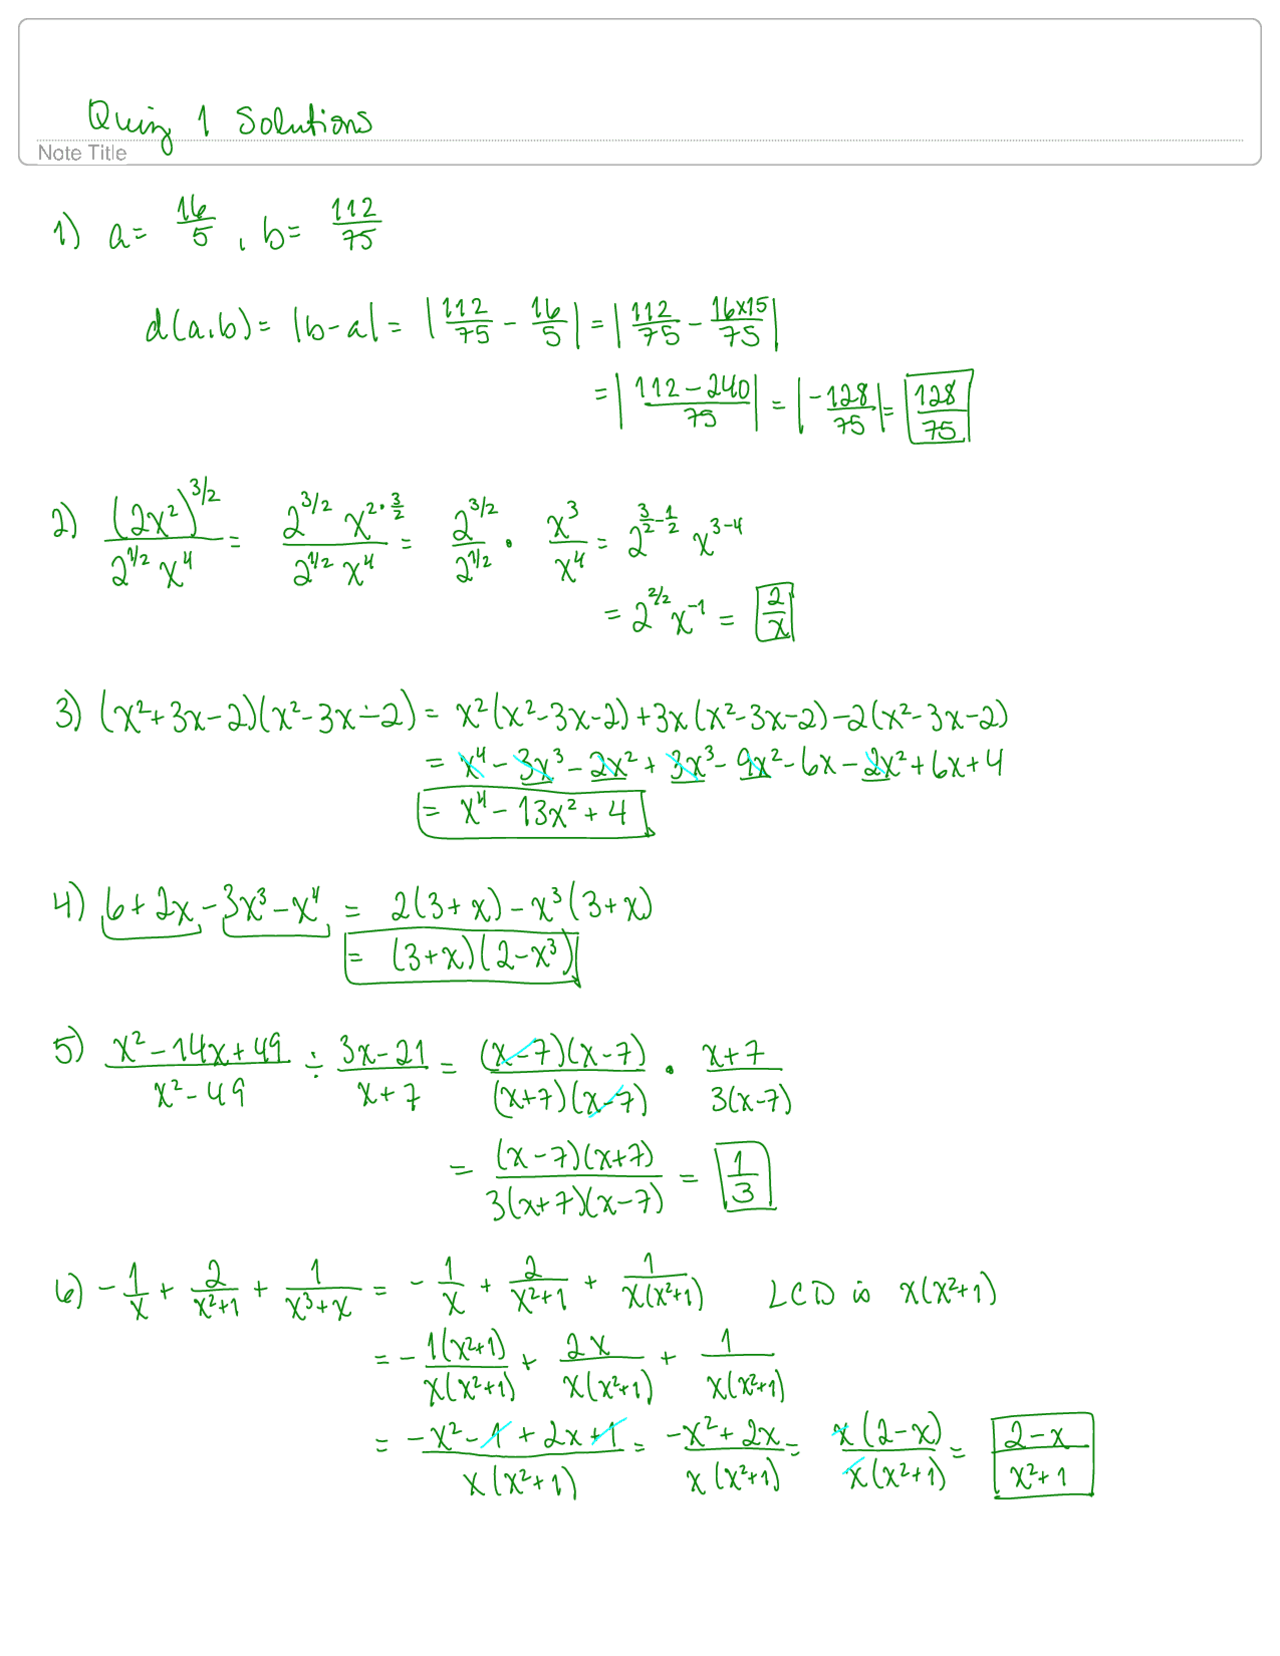 Quiz 1 Solutions
Note Title
1) a = 16/5 , b = 112/75
d(a,b) = |b-a| = |112/75 - 16/5| = |112/75 - 16x15/75|
= |112-240/75| = |-128/75| = 128/75
2) (2x²)^3/2 / 2^1/2 x⁴ = 2^3/2 x^2·3/2 / 2^1/2 x⁴ = 2^3/2 / 2^1/2 · x³/x⁴ = 2^3/2-1/2 x^3-4
= 2^2/2 x^-1 = 2/x
3) (x²+3x-2)(x²-3x-2) = x²(x²-3x-2)+3x(x²-3x-2)-2(x²-3x-2)
= x⁴ - 3x³ - 2x² + 3x³ - 9x² - 6x - 2x² + 6x + 4
= x⁴ - 13x² + 4
4) 6+2x-3x³-x⁴ = 2(3+x) - x³(3+x)
= (3+x)(2-x³)
5) x²-14x+49 / x²-49 ÷ 3x-21 / x+7 = (x-7)(x-7) / (x+7)(x-7) · x+7 / 3(x-7)
= (x-7)(x+7) / 3(x+7)(x-7) = 1/3
6) -1/x + 2/x²+1 + 1/x³+x = -1/x + 2/x²+1 + 1/x(x²+1) LCD is x(x²+1)
= -1(x²+1) / x(x²+1) + 2x / x(x²+1) + 1 / x(x²+1)
= -x²-1+2x+1 / x(x²+1) = -x²+2x / x(x²+1) = x(2-x) / x(x²+1) = 2-x / x²+1